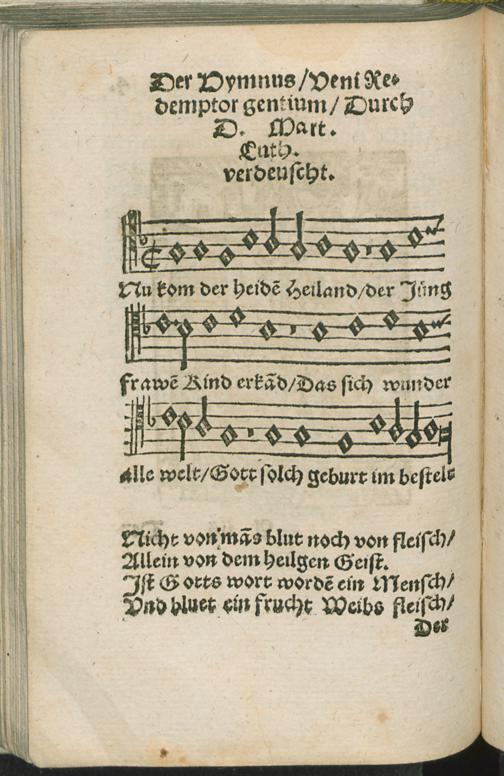 Der Hymnus/Veni Re-
demptor gentium/Durch
D. Mart.
Luth.
verdeuscht.
Nu kom der heidē Heiland/der Jüng
frawē Kind erkād/Das sich wunder
alle welt/Gott solch geburt im bestelt
Nicht von mās blut noch von fleisch/
Allein von dem heilgen Geist.
Ist Gotts wort wordē ein Mensch/
Vnd bluet ein frucht Weibs fleisch/
Der